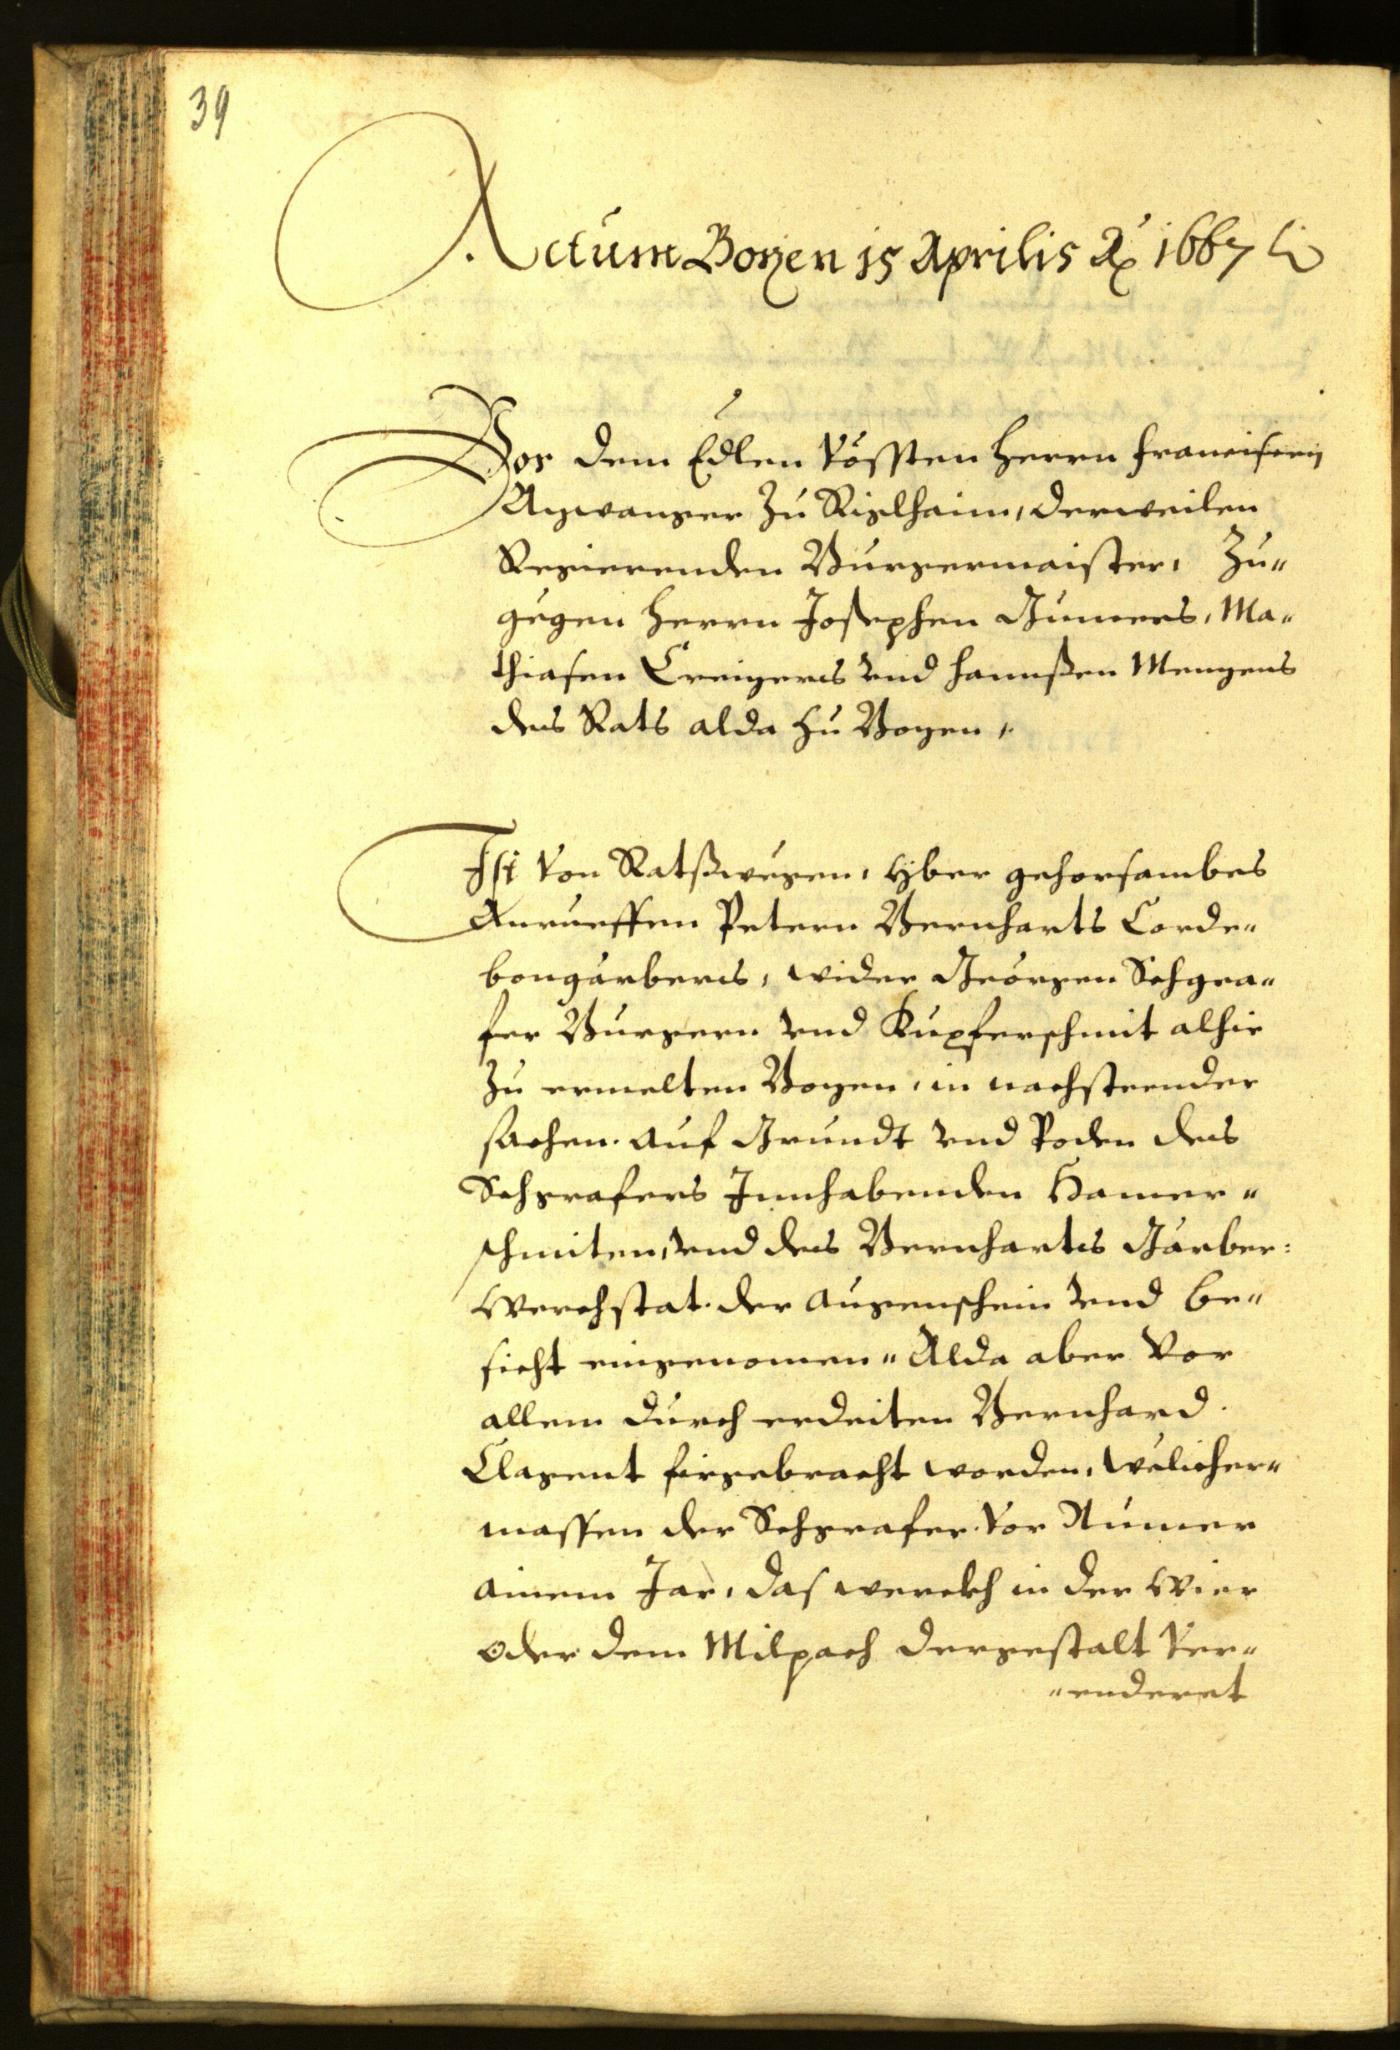 39
Actum Bozen 15 Aprilis Aº 1667
Vor dem Edlen Vössten Herrn Francisceij
Azwanger zu Riglhaim, derweilen
Regierenden Burgermaister, Zu„
gegen Herrn Josephen Gumers, Ma„
thiasen Creizers vnd Hannßen Menzens
des Rats alda zu Bozen,
Ist von Ratßwegen, yber gehorsambes
Anrueffen Petern Bernharts Corde„
bongärbers, wider Geörgen Schgra„
fer Burgern vnd Kupferschmit alhie
Zu ermelten Bozen, in nachsteender
sachen. auf Grundt vnd Poden des
Schgrafers Innhabenden Hamer„
schmiten, vnd des Bernharts Gärber:
Werchstat. der augenschein vnd be„
sicht eingenomen„ Alda aber vor
allem durch erdeiten Bernhard.
Clagent firgebracht worden, welicher„
massen der Schgrafer vor Numer
ainem Jar, das werckh in der Wier
oder dem Milpach dergestalt ver„
„enderet